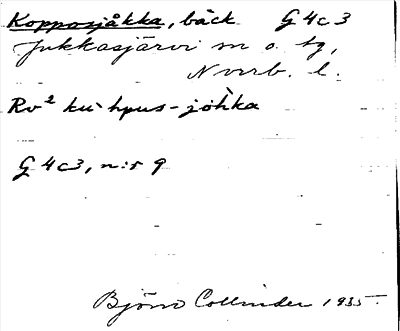 Koppasjåkka, bäck G 4 c 3
Jukkasjärvi sn o. tg,
Norrb. l.
Rv² ku·hpus-jòhka
G 4 c 3, n:r 9
Björn Collinder 1935